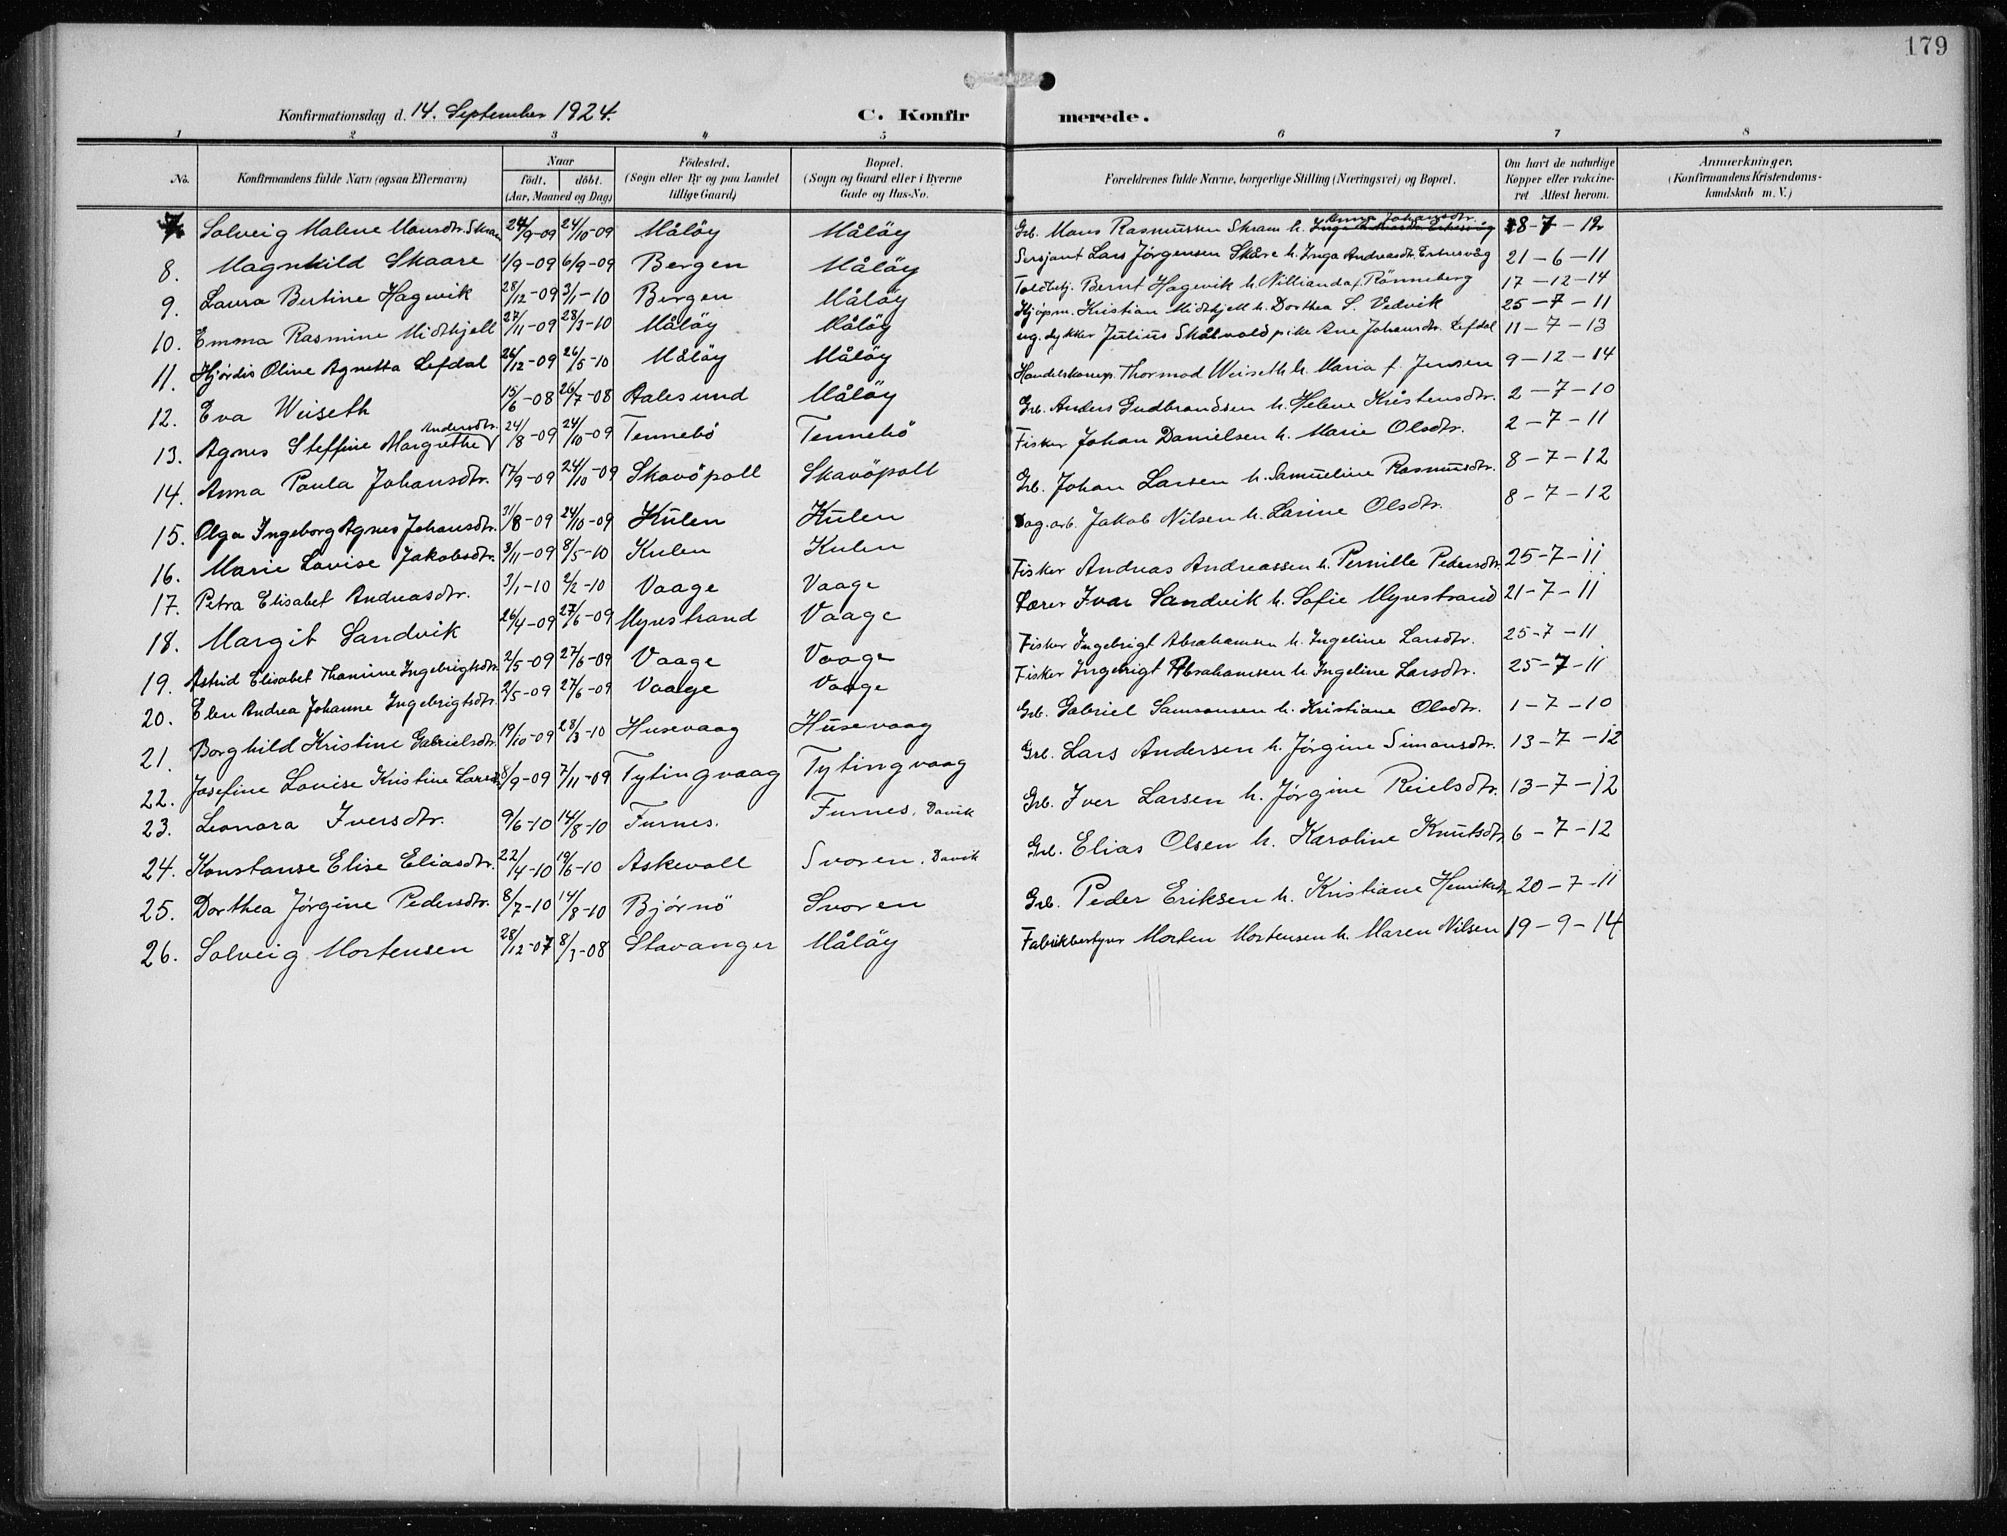 179
Konfirmationsdag d. 14. September 1924. C. Konfirmerede.
1 2 3 4 5 6 7 8
No. Konfirmandens fulde Navn (ogsaa Efternavn) Naar födt. döbt. (Aar, Maaned og Dag) Födested. (Sogn eller By og paa Landet tillige Gaard) Bopæl. (Sogn og Gaard eller i Byerne Gade og Hus-No. Forældrenes fulde Navne, borgerlige Stilling (Næringsvei) og Bopæl. Om havt de naturlige Kopper eller vaccineret Attest herom. Anmærkninger. (Konfirmandens Kristendomskundskab m. V.)
7. Solveig Malene Monsdtr. Skram 24/9-09 24/10-09 Måløy Måløy Grb. Mons Rasmussen Skram h. Anna Johansdtr. 8-7-12
8. Magnhild Skaare 1/9-09 6/9-09 Bergen Måløy Sersjant Lars Jørgensen Skåre h. Inga Andreasdtr. Ertresvåg 21-6-11
9. Laura Bertine Hagevik 28/12-09 3/1-10 Bergen Måløy Toldbetj. Bernt Hagevik h. Nillianda f. Rönneberg 17-12-14
10. Emma Rasmine Midthjell 27/11-09 28/3-10 Måløy Måløy Kjøpm. Kristian Midthjell h. Dorthea S. Vedvik 25-7-11
11. Hjørdis Oline Agnetta Lefdal 26/12-09 26/5-10 Måløy Måløy ug. dykker Julius Skålvold pike Ane Johansdtr. Lefdal 11-7-13
12. Eva Weiseth 15/6-08 26/7-08 Aalesund Måløy Handelskomp. Thormod Weiseth h. Maria f. Jensen 9-12-14
13. Agnes Steffine Margrethe Andersdtr. 24/8-09 24/10-09 Tennebö Tennebö Grb. Anders Gudbrandsen h. Helene Kristensdtr. 2-7-10
14. Anna Paula Johansdtr. 17/9-09 24/10-09 Skavöpoll Skavöpoll Fisker Johan Danielsen h. Marie Olsdtr. 2-7-11
15. Olga Ingeborg Agnes Johansdtr. 31/8-09 24/10-09 Kulen Kulen Grb. Johan Larsen h. Samueline Rasmusdtr. 8-7-12
16. Marie Lovise Jakobsdtr. 3/11-09 8/5-10 Kulen Kulen Dag.arb. Jakob Nilsen h. Larine Olsdtr. 8-7-12
17. Petra Elisabet Andreasdtr. 3/1-10 2/2-10 Vaage Vaage Fisker Andreas Andreassen h. Pernille Pedersdtr. 25-7-11
18. Margit Sandvik 26/4-09 27/6-09 Myrestrand Vaage Lærer Ivar Sandvik h. Sofie Myrestrand 21-7-11
19. Astrid Elisabet Thamine Ingebrigtsdtr. 2/5-09 27/6-09 Vaage Vaage Fisker Ingebrigt Abrahamsen h. Ingeline Larsdtr. 25-7-11
20. Elen Andrea Johanne Ingebrigtsdtr. 2/5-09 27/6-09 Vaage Vaage Fisker Ingebrigt Abrahamsen h. Ingeline Larsdtr. 25-7-11
21. Borghild Kristine Gabrielsdtr. 19/10-09 28/3-10 Husevaag Husevaag Grb. Gabriel Samsonsen h. Kristiane Olsdtr. 1-7-10
22. Josefine Lovise Kristine Larsd. 8/9-09 7/11-09 Tytingvaag Tytingvaag Grb. Lars Andersen h. Jørgine Simonsdtr. 13-7-12
23. Leonora Iversdtr. 9/6-10 14/8-10 Furnes. Furnes, Davik Grb. Iver Larsen h. Jørgine Reielsdtr. 13-7-12
24. Konstanse Elise Eliasdtr. 22/4-10 19/6-10 Askevoll Svoren, Davik Grb. Elias Olsen h. Karoline Knutsdtr. 6-7-12
25. Dorthea Jørgine Pedersdtr. 8/7-10 14/8-10 Bjørnö Svoren Grb. Peder Eriksen h. Kristiane Henriksdtr. 20-7-11
26. Solveig Mortensen 28/12-07 8/3-08 Stavanger Måløy Fabrikbestyrer Morten Mortensen h. Maren Nilsen 19-9-14